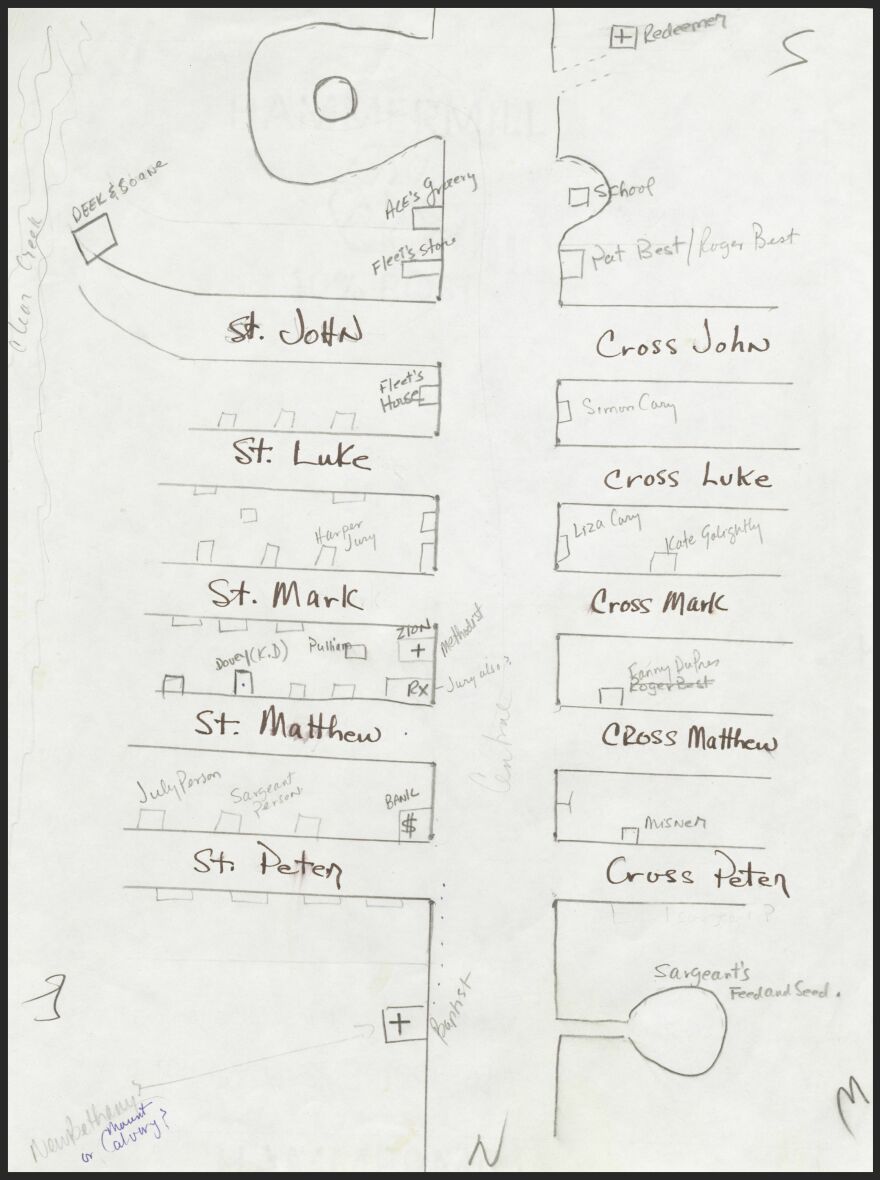 Redeemer
S
DEEK & SOANE
Clear Creek
ACE's Grocery
School
Fleet's Store
Pat Best / Roger Best
St. JOHN
Cross JOHN
Fleet's
House
Simon Cary
St. Luke
Cross Luke
Harper
Jury
Liza Cary
Kate Golightly
St. Mark
Cross Mark
ZION
Methodist
Dovey (K.D)
Pulliam
Fanny DuPres
Roger Best
RX
Jury also?
St. Matthew
CROSS Matthew
Central
July Person
Sargeant
Person
BANK
$
MISNER
St. Peter
Cross Peter
Sargeant's
Feed and Seed.
E
Baptist
New Bethany?
or Mount
Calvary?
N
W